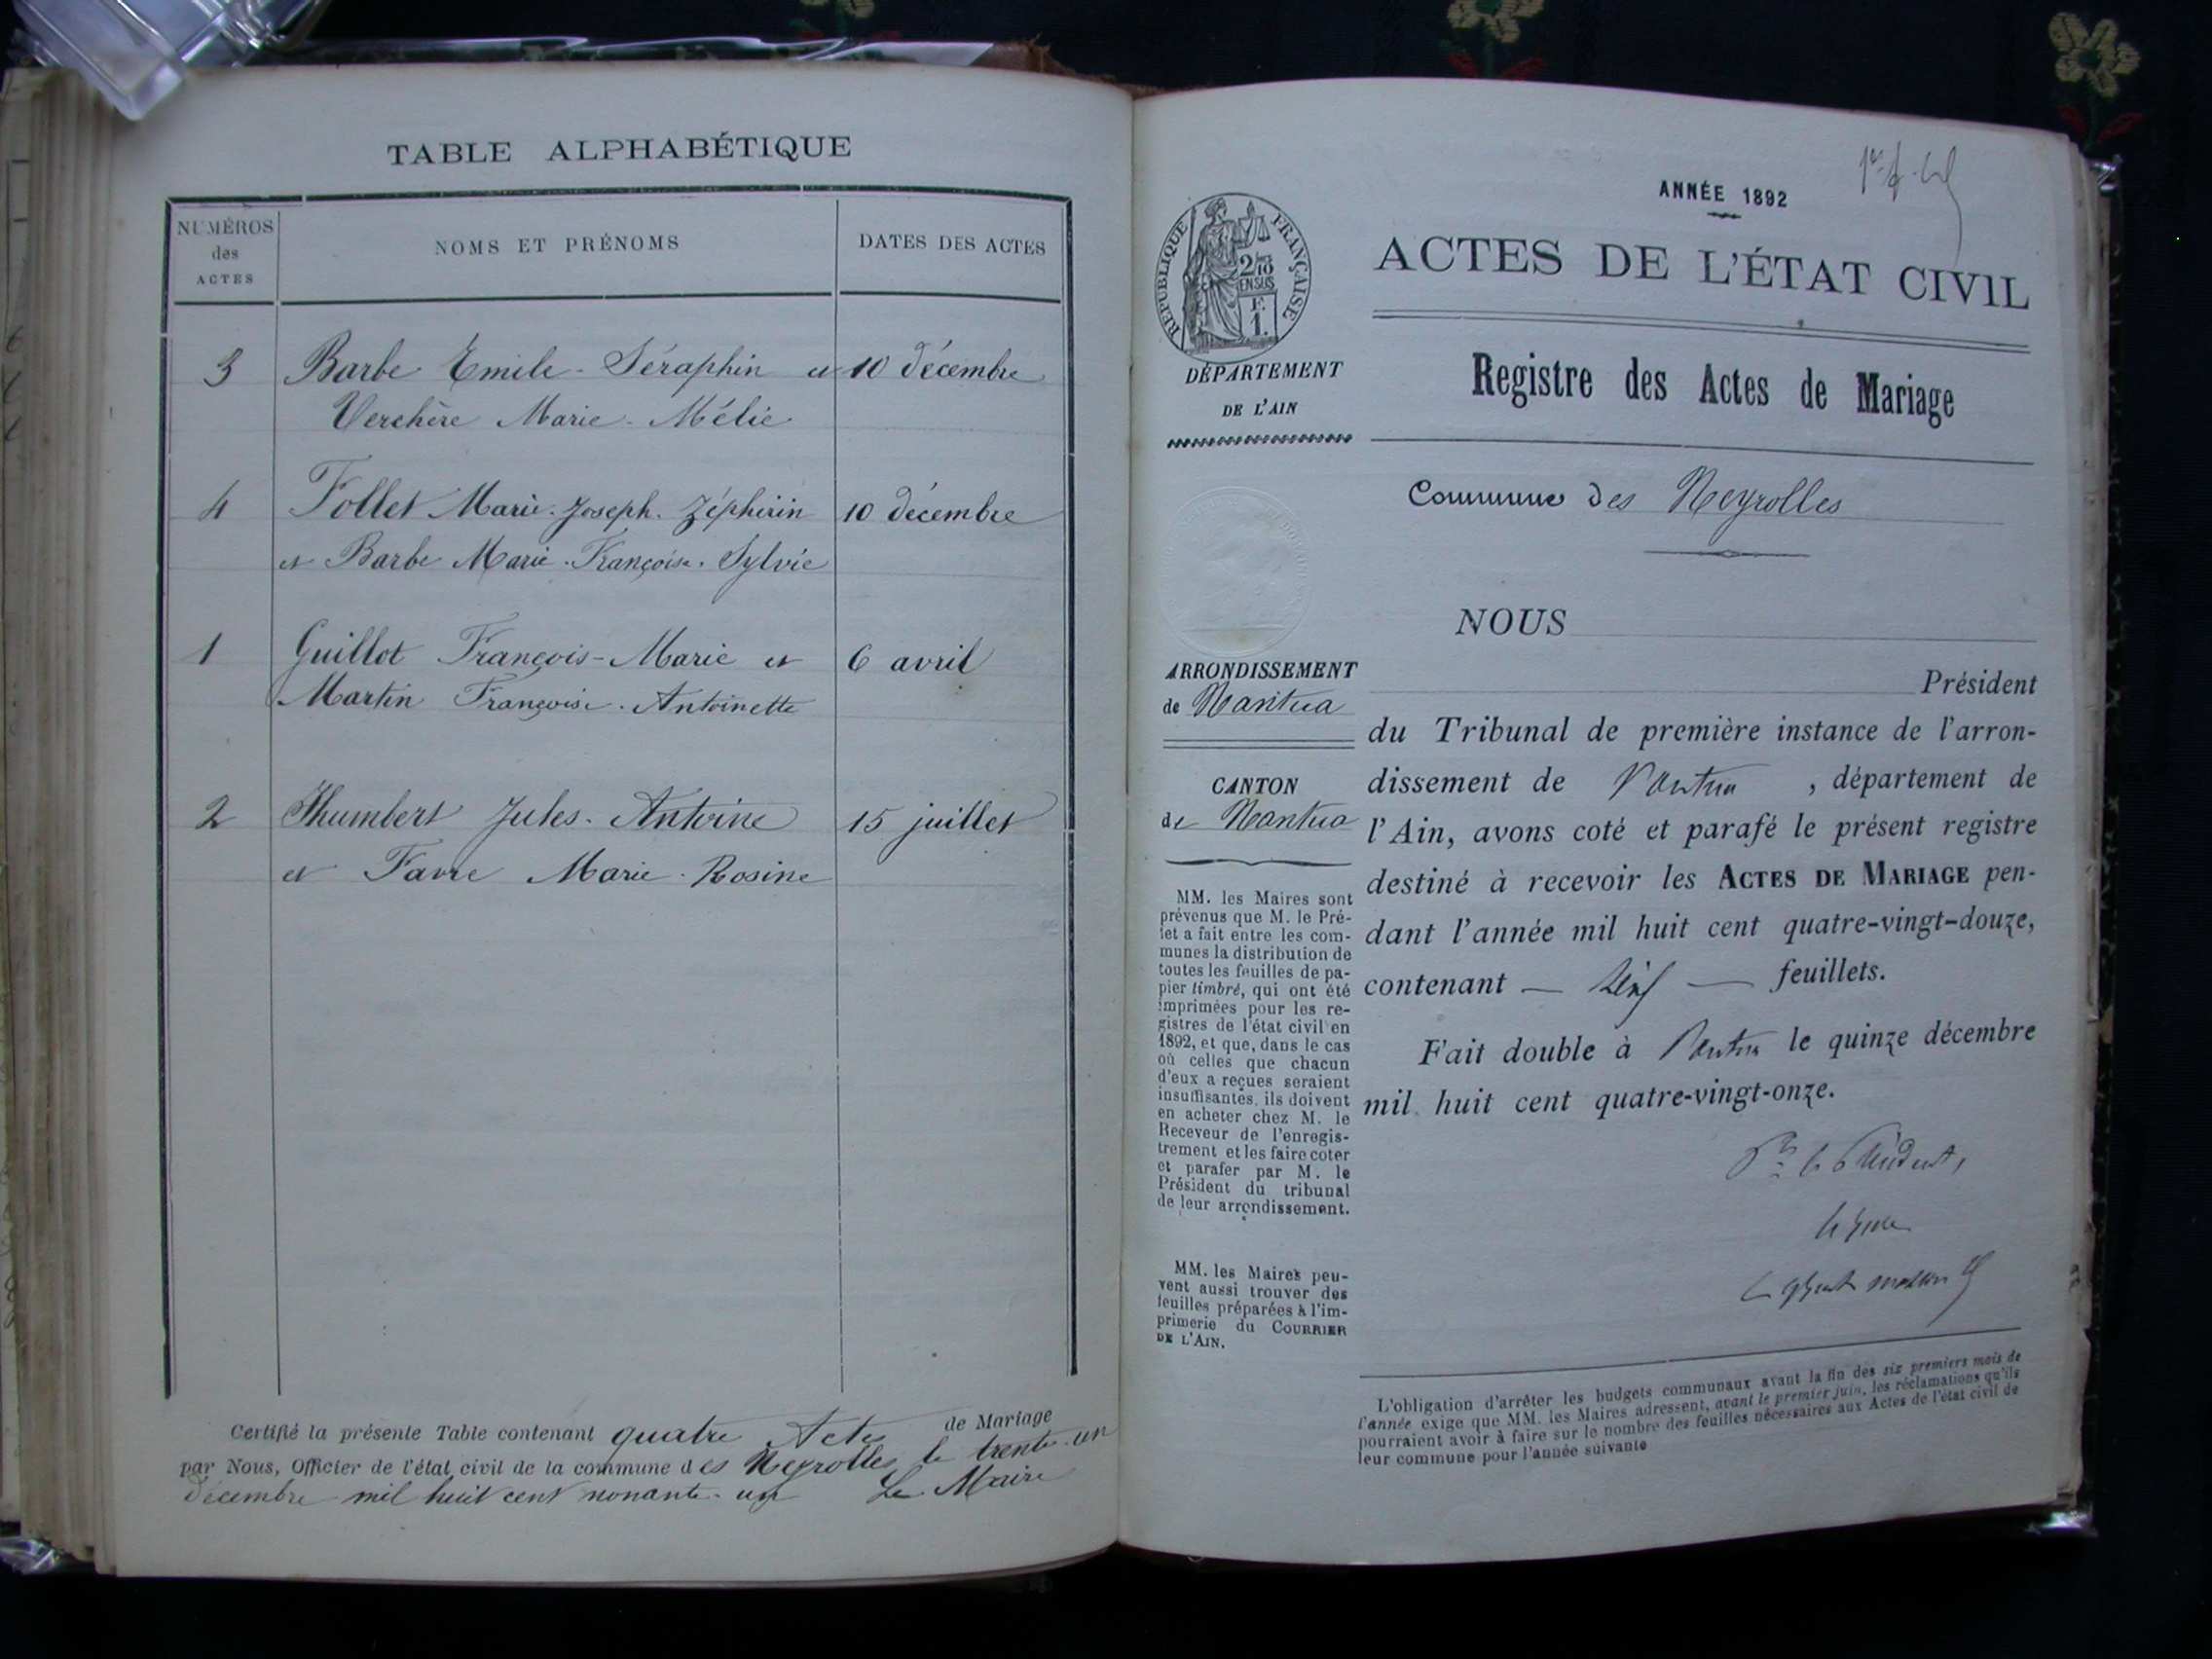 TABLE ALPHABÉTIQUE
NUMÉROS des ACTES
NOMS ET PRÉNOMS
DATES DES ACTES
3 Barbe Emile-Séraphin et 10 décembre
Verchère Marie-Mélie
4 Follet Marie-Joseph-Zéphirin 10 décembre
et Barbe Marie-Françoise-Sylvie
1 Guillot François-Marie et 6 avril
Martin Françoise-Antoinette
2 Thumbert Jules-Antoine 15 juillet
et Favre Marie-Rosine
Certifié la présente Table contenant quatre Actes de Mariage
par Nous, Officier de l'état civil de la commune des Neyrolles le trente-un
décembre mil huit cent nonante-un Le Maire
ANNÉE 1892
RÉPUBLIQUE FRANÇAISE
2/10
EN SUS
F.
1.
ACTES DE L'ÉTAT CIVIL
DÉPARTEMENT
DE L'AIN
Registre des Actes de Mariage
Commune des Neyrolles
ARRONDISSEMENT
de Nantua
CANTON
de Nantua
MM. les Maires sont
prévenus que M. le Pré-
fet a fait entre les com-
munes la distribution de
toutes les feuilles de pa-
pier timbré, qui ont été
imprimées pour les re-
gistres de l'état civil en
1892, et que, dans le cas
où celles que chacun
d'eux a reçues seraient
insuffisantes, ils doivent
en acheter chez M. le
Receveur de l'enregis-
trement et les faire coter
et parafer par M. le
Président du tribunal
de leur arrondissement.
MM. les Maires peu-
vent aussi trouver des
feuilles préparées à l'im-
primerie du COURRIER
DE L'AIN.
NOUS
Président
du Tribunal de première instance de l'arron-
dissement de Nantua, département de
l'Ain, avons coté et parafé le présent registre
destiné à recevoir les ACTES DE MARIAGE pen-
dant l'année mil huit cent quatre-vingt-douze,
contenant — — feuillets.
Fait double à Nantua le quinze décembre
mil huit cent quatre-vingt-onze.
Pr le Président,
le juge
L'obligation d'arrêter les budgets communaux avant la fin des six premiers mois de
l'année exige que MM. les Maires adressent, avant le premier juin, les réclamations qu'ils
pourraient avoir à faire sur le nombre des feuilles nécessaires aux Actes de l'état civil de
leur commune pour l'année suivante